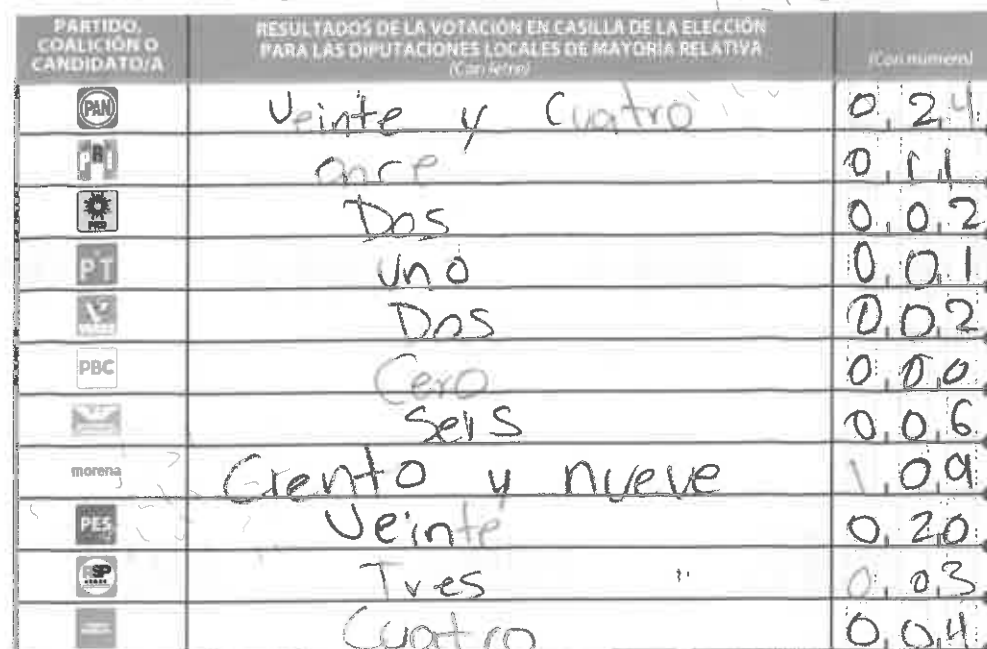 PARTIDO, COALICIÓN O CANDIDATO/A
RESULTADOS DE LA VOTACIÓN EN CASILLA DE LA ELECCIÓN PARA LAS DIPUTACIONES LOCALES DE MAYORÍA RELATIVA
(Con letra)
(Con número)
PAN Veinte y Cuatro 0,2,4
PRI once 0,1,1
PRD Dos 0,0,2
PT uno 0,0,1
VERDE Dos 0,0,2
PBC Cero 0,0,0
Seis 0,0,6
morena Ciento y nueve 1,0,9
PES Veinte 0,2,0
RSP Tres " 0,0,3
Cuatro 0,0,4